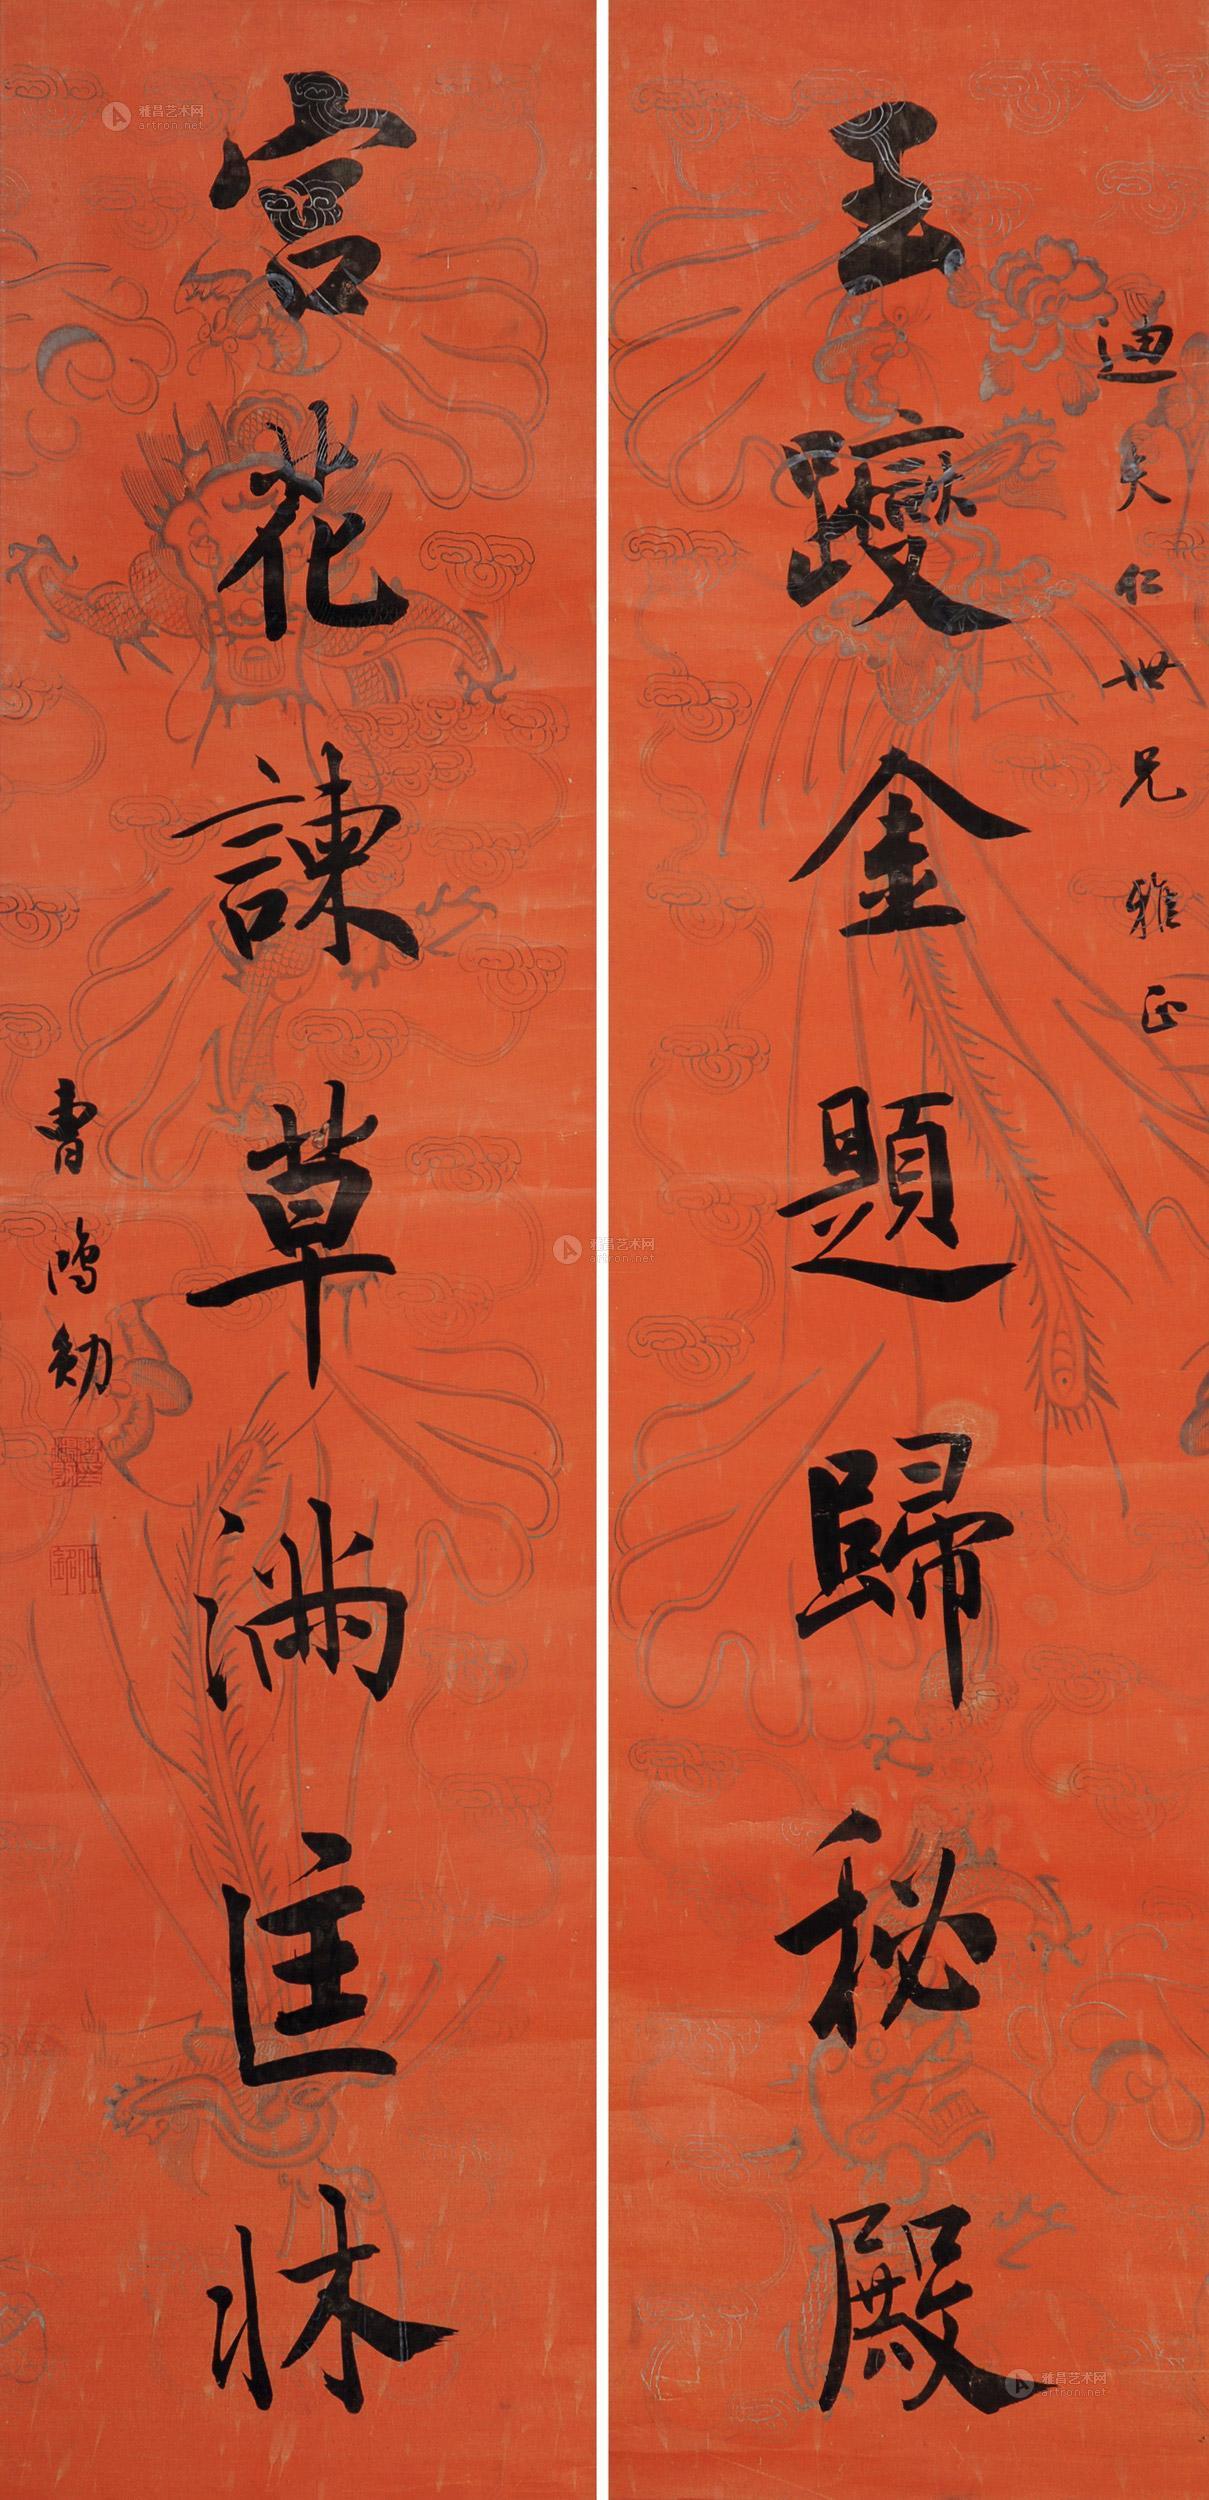 迪夫仁世兄雅正
玉躞金題歸秘殿
宮花諫草滿匡牀
曹鴻勛
雅昌艺术网
artron.net
雅昌艺术网
artron.net
雅昌艺术网
artron.net